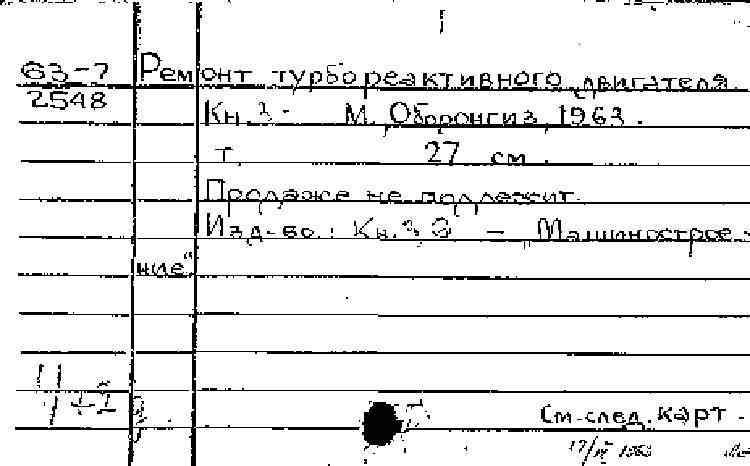 63-7 Ремонт турбореактивного двигателя.
2548
Кн. 3- М., Оборонгиз, 1963.
т. 27 см.
Продаже не подлежит.
Изд-во: Кн. 3 - Машинострое-
ние".
См. след. карт.
1963